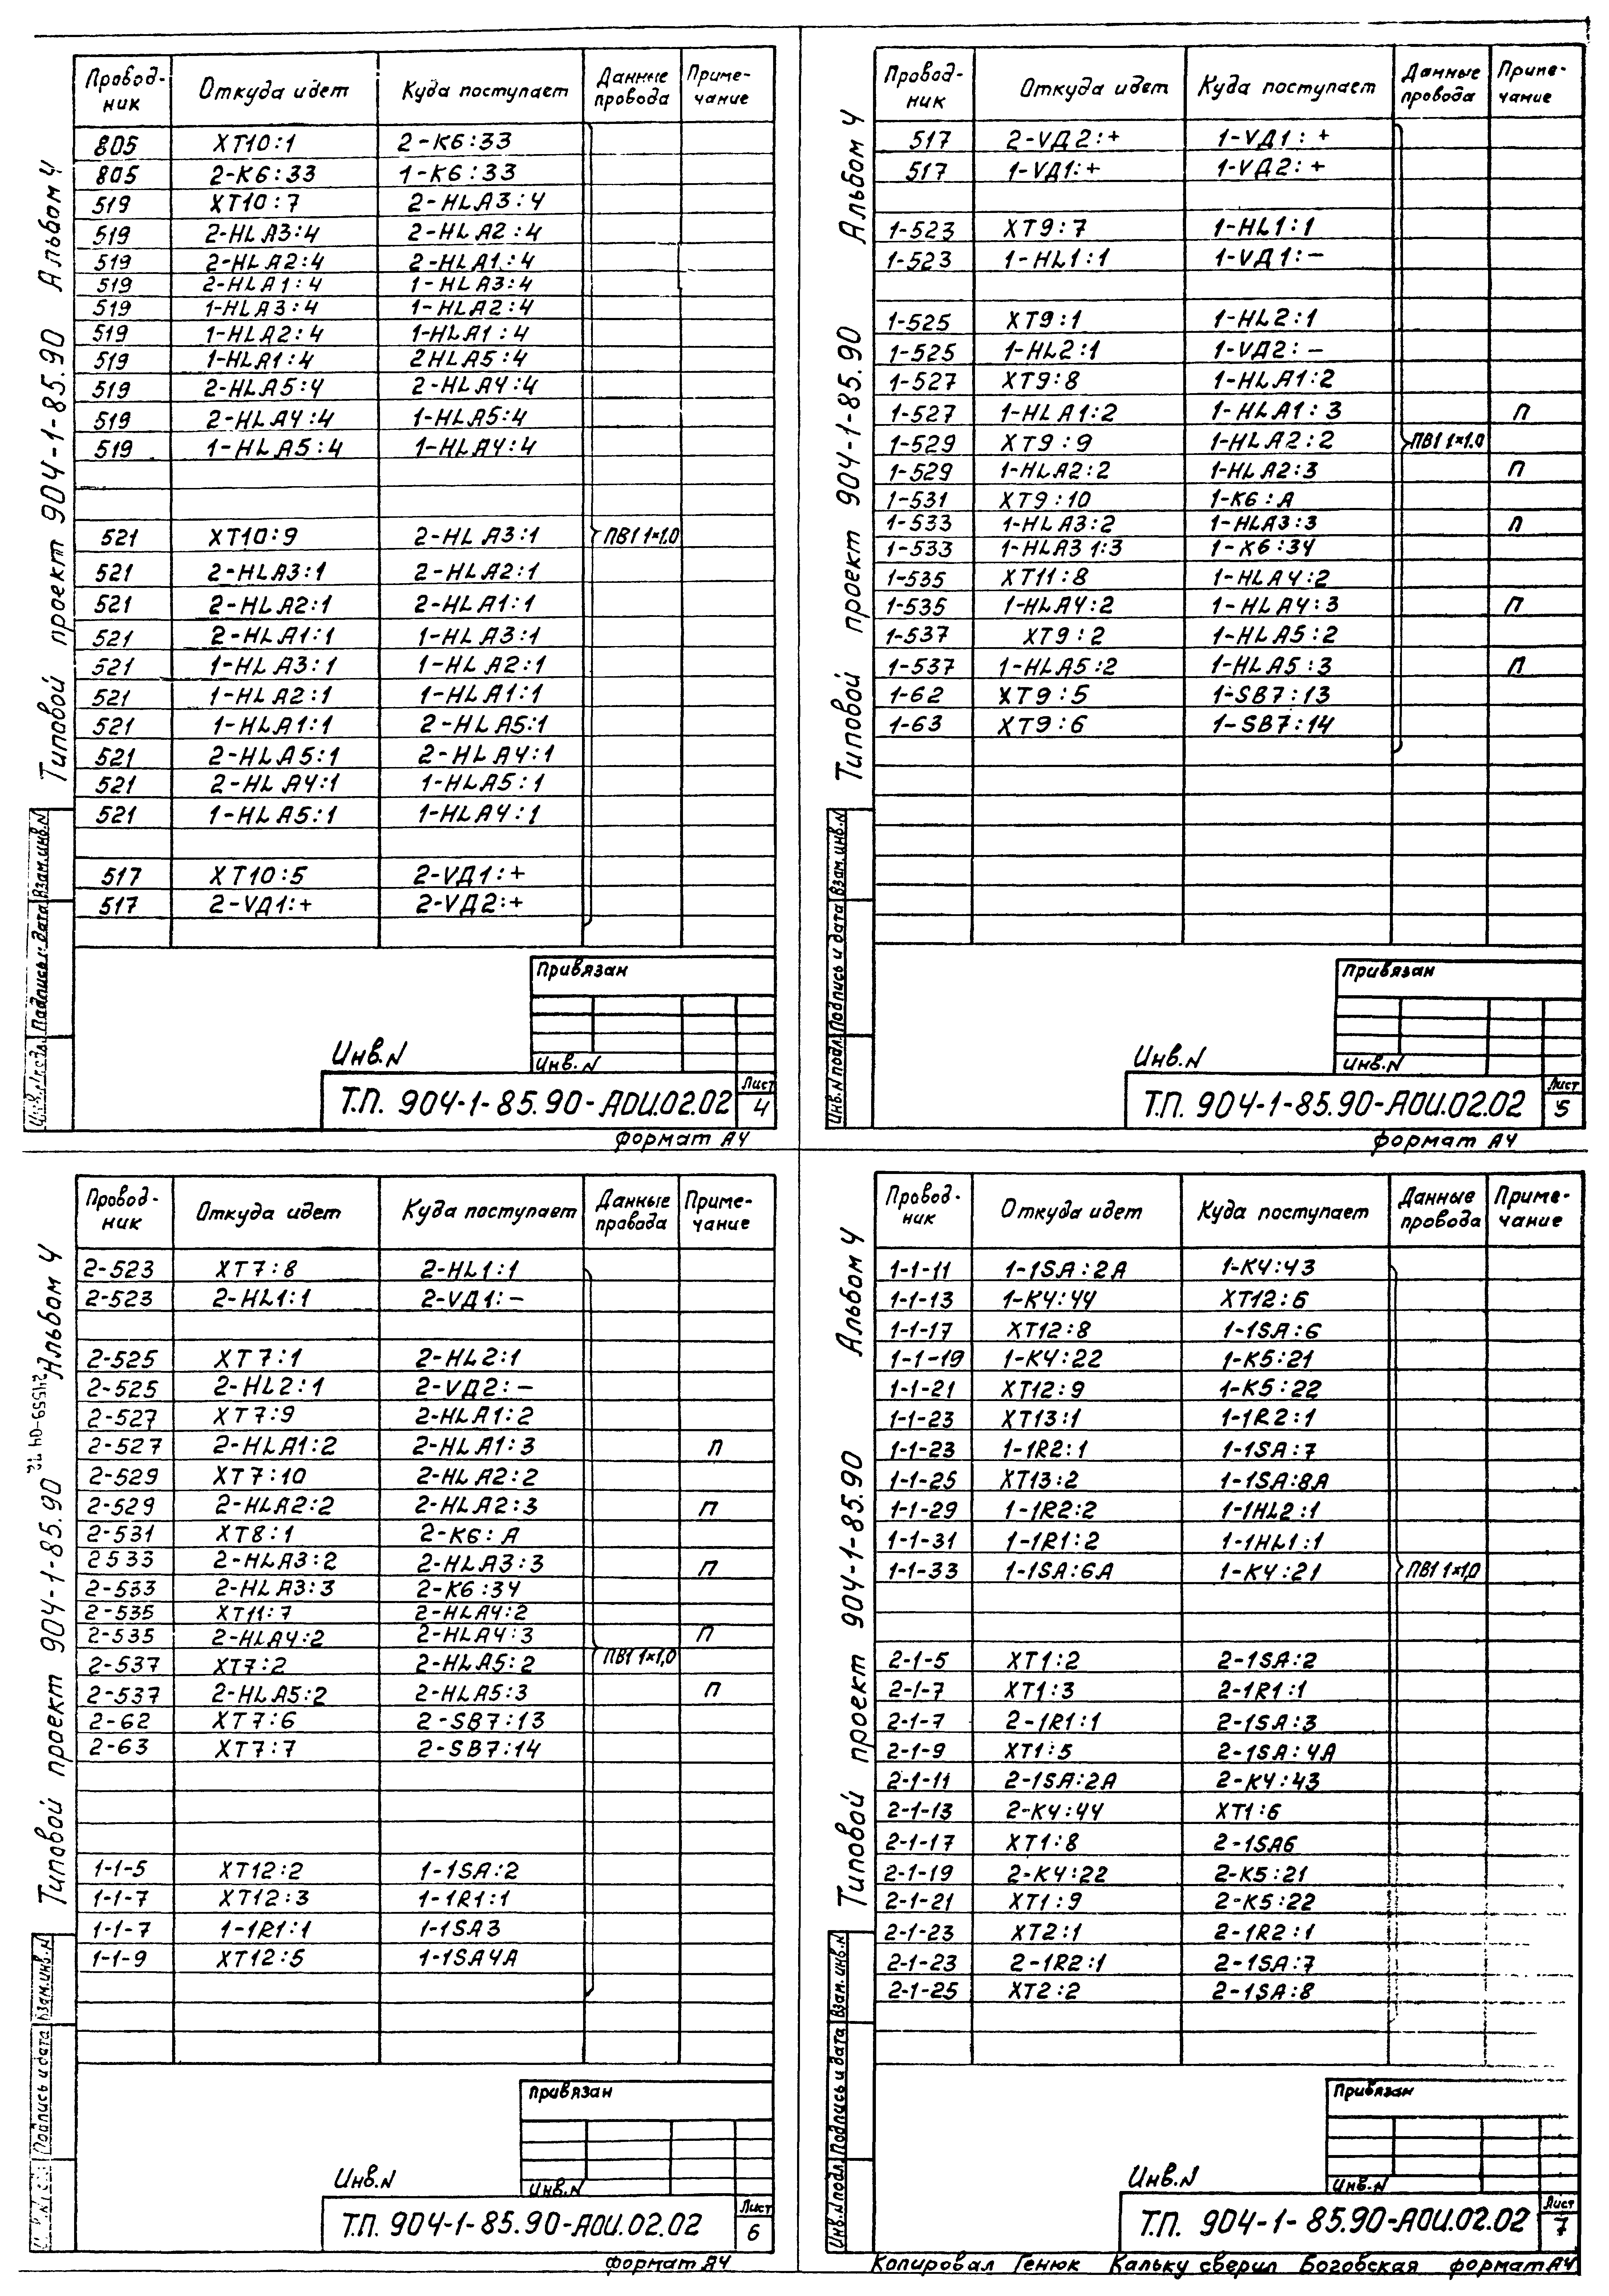 Типовой проект 904-1-85.90 Альбом 4
Провод-ник Откуда идет Куда поступает Данные провода Приме-чание
805 XT10:1 2-К6:33
805 2-К6:33 1-К6:33
519 XT10:7 2-HLA3:4
519 2-HLA3:4 2-HLA2:4
519 2-HLA2:4 2-HLA1:4
519 2-HLA1:4 1-HLA3:4
519 1-HLA3:4 1-HLA2:4
519 1-HLA2:4 1-HLA1:4
519 1-HLA1:4 2HLA5:4
519 2-HLA5:4 2-HLA4:4
519 2-HLA4:4 1-HLA5:4
519 1-HLA5:4 1-HLA4:4
521 XT10:9 2-HLA3:1 ПВ1 1×1.0
521 2-HLA3:1 2-HLA2:1
521 2-HLA2:1 2-HLA1:1
521 2-HLA1:1 1-HLA3:1
521 1-HLA3:1 1-HLA2:1
521 1-HLA2:1 1-HLA1:1
521 1-HLA1:1 2-HLA5:1
521 2-HLA5:1 2-HLA4:1
521 2-HLA4:1 1-HLA5:1
521 1-HLA5:1 1-HLA4:1
517 XT10:5 2-VД1:+
517 2-VД1:+ 2-VД2:+
Подпись и дата Взам.инв.N
Привязан
Инв.N
Инв.N
Т.П. 904-1-85.90-АОИ.02.02 Лист 4
формат А4
Типовой проект 904-1-85.90 Альбом 4
Провод-ник Откуда идет Куда поступает Данные провода Приме-чание
517 2-VД2:+ 1-VД1:+
517 1-VД1:+ 1-VД2:+
1-523 XT9:7 1-HL1:1
1-523 1-HL1:1 1-VД1:-
1-525 XT9:1 1-HL2:1
1-525 1-HL2:1 1-VД2:-
1-527 XT9:8 1-HLA1:2
1-527 1-HLA1:2 1-HLA1:3 П
1-529 XT9:9 1-HLA2:2 ПВ1 1×1.0
1-529 1-HLA2:2 1-HLA2:3 П
1-531 XT9:10 1-К6:А
1-533 1-HLA3:2 1-HLA3:3 П
1-533 1-HLA3 1:3 1-К6:34
1-535 XT11:8 1-HLA4:2
1-535 1-HLA4:2 1-HLA4:3 П
1-537 XT9:2 1-HLA5:2
1-537 1-HLA5:2 1-HLA5:3 П
1-62 XT9:5 1-SB7:13
1-63 XT9:6 1-SB7:14
Инв.N подл. Подпись и дата Взам.инв.N
Привязан
Инв.N
Инв.N
Т.П. 904-1-85.90-АОИ.02.02 Лист 5
формат А4
Типовой проект 904-1-85.90 Альбом 4
Провод-ник Откуда идет Куда поступает Данные провода Приме-чание
2-523 XT7:8 2-HL1:1
2-523 2-HL1:1 2-VД1:-
2-525 XT7:1 2-HL2:1
2-525 2-HL2:1 2-VД2:-
2-527 XT7:9 2-HLA1:2
2-527 2-HLA1:2 2-HLA1:3 П
2-529 XT7:10 2-HLA2:2
2-529 2-HLA2:2 2-HLA2:3 П
2-531 XT8:1 2-К6:А
2533 2-HLA3:2 2-HLA3:3 П
2-533 2-HLA3:3 2-К6:34
2-535 XT11:7 2-HLA4:2
2-535 2-HLA4:2 2-HLA4:3 П
2-537 XT7:2 2-HLA5:2 ПВ1 1×1,0
2-537 2-HLA5:2 2-HLA5:3 П
2-62 XT7:6 2-SB7:13
2-63 XT7:7 2-SB7:14
1-1-5 XT12:2 1-1SA:2
1-1-7 XT12:3 1-1R1:1
1-1-7 1-1R1:1 1-1SA3
1-1-9 XT12:5 1-1SA4A
Подпись и дата Взам.инв.N
Привязан
Инв.N
Инв.N
Т.П. 904-1-85.90-АОИ.02.02 Лист 6
формат А4
Типовой проект 904-1-85.90 Альбом 4
Провод-ник Откуда идет Куда поступает Данные провода Приме-чание
1-1-11 1-1SA:2A 1-К4:43
1-1-13 1-К4:44 XT12:6
1-1-17 XT12:8 1-1SA:6
1-1-19 1-К4:22 1-К5:21
1-1-21 XT12:9 1-К5:22
1-1-23 XT13:1 1-1R2:1
1-1-23 1-1R2:1 1-1SA:7
1-1-25 XT13:2 1-1SA:8A
1-1-29 1-1R2:2 1-1HL2:1
1-1-31 1-1R1:2 1-1HL1:1
1-1-33 1-1SA:6A 1-К4:21 ПВ1 1×1,0
2-1-5 XT1:2 2-1SA:2
2-1-7 XT1:3 2-1R1:1
2-1-7 2-1R1:1 2-1SA:3
2-1-9 XT1:5 2-1SA:4A
2-1-11 2-1SA:2A 2-К4:43
2-1-13 2-К4:44 XT1:6
2-1-17 XT1:8 2-1SA6
2-1-19 2-К4:22 2-К5:21
2-1-21 XT1:9 2-К5:22
2-1-23 XT2:1 2-1R2:1
2-1-23 2-1R2:1 2-1SA:7
2-1-25 XT2:2 2-1SA:8
Инв.N подл. Подпись и дата Взам.инв.N
Привязан
Инв.N
Инв.N
Т.П. 904-1-85.90-АОИ.02.02 Лист 7
Копировал Генюк Кальку сверил Боговская формат А4